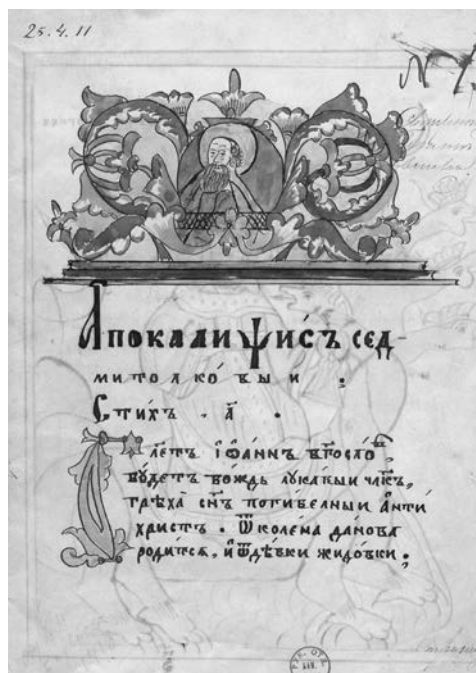 25.4.11
N
Апокалиѱисъ сед-
митолко́выи :
Сти́хъ . а҃ .
Гл҃етъ і҆ѡа́ннъ бг҃осло́в
бꙋ́детъ во́ждь лꙋка́выи чл҃къ,
грѣха̀ сн҃ъ поги́белныи а҆нти́
христъ . ѿ колѣ́на да́нова
роди́тся, и҆ ѿ дѣ́вки жидо́вки :